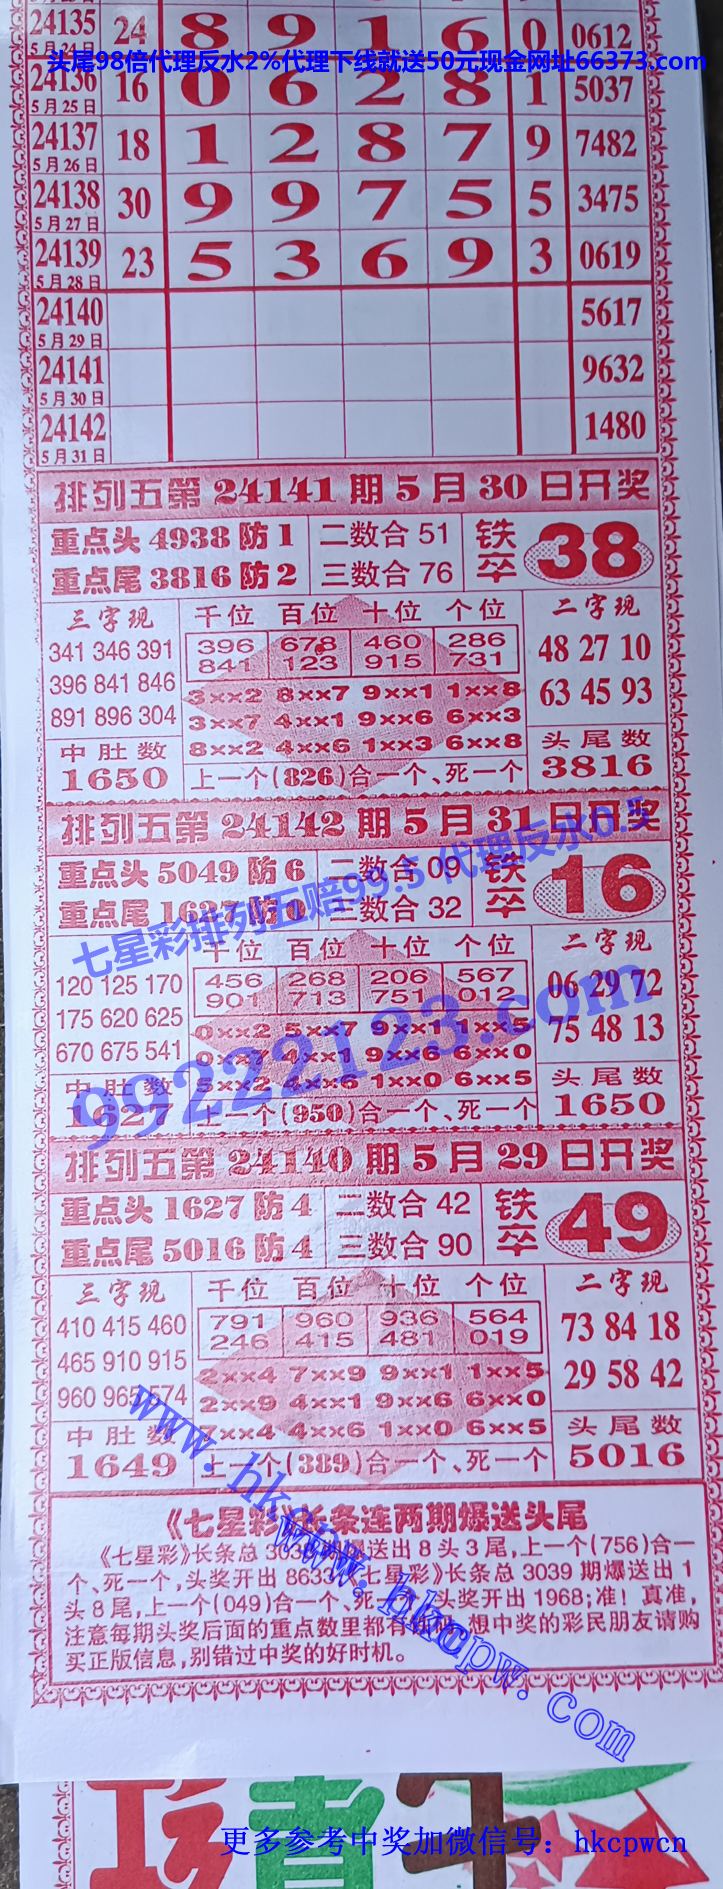 24135 24 8 9 1 6 0 0612
5月24日
头尾98倍代理反水2%代理下线就送50元现金网址66373.com
24136 16 0 6 2 8 1 5037
5月25日
24137 18 1 2 8 7 9 7482
5月26日
24138 30 9 9 7 5 5 3475
5月27日
24139 23 5 3 6 9 3 0619
5月28日
24140 5617
5月29日
24141 9632
5月30日
24142 1480
5月31日
排列五第24141期5月30日开奖
重点头4938防1 二数合51 铁卒 38
重点尾3816防2 三数合76
三字现 千位 百位 十位 个位 二字现
341 346 391 396 678 460 286 48 27 10
841 123 915 731
396 841 846 3××2 8××7 9××1 1××8 63 45 93
891 896 304 3××7 4××1 9××6 6××3
中肚数 8××2 4××6 1××3 6××8 头尾数
1650 上一个(826)合一个、死一个 3816
排列五第24142期5月31日开奖
重点头5049防6 二数合09 铁卒 16
重点尾1627防0 三数合32
七星彩排列五赔99.5 代理反水0.5
千位 百位 十位 个位 二字现
120 125 170 456 268 206 567 06 29 72
901 713 751 012
175 620 625 0××2 5××7 9××1 1××5 75 48 13
670 675 541 0××7 4××1 9××6 6××0
99222123.com
中肚数 5××2 4××6 1××0 6××5 头尾数
1627 上一个(950)合一个、死一个 1650
排列五第24140期5月29日开奖
重点头1627防4 二数合42 铁卒 49
重点尾5016防4 三数合90
三字现 千位 百位 十位 个位 二字现
410 415 460 791 960 936 564 73 84 18
246 415 481 019
465 910 915 2××4 7××9 9××1 1××5 29 58 42
960 965 574 2××9 4××1 9××6 6××0
中肚数 7××4 4××6 1××0 6××5 头尾数
1649 上一个(389)合一个、死一个 5016
www.hkcpw.com
《七星彩》长条连两期爆送头尾
《七星彩》长条总303 送出8头3尾,上一个(756)合一
个、死一个,头奖开出8633 《七星彩》长条总3039期爆送出1
头8尾,上一个(049)合一个、死一个,头奖开出1968;准！真准,
注意每期头奖后面的重点数里都有 想中奖的彩民朋友请购
买正版信息,别错过中奖的好时机。
www.hkcpw.com
更多参考中奖加微信号：hkcpwcn